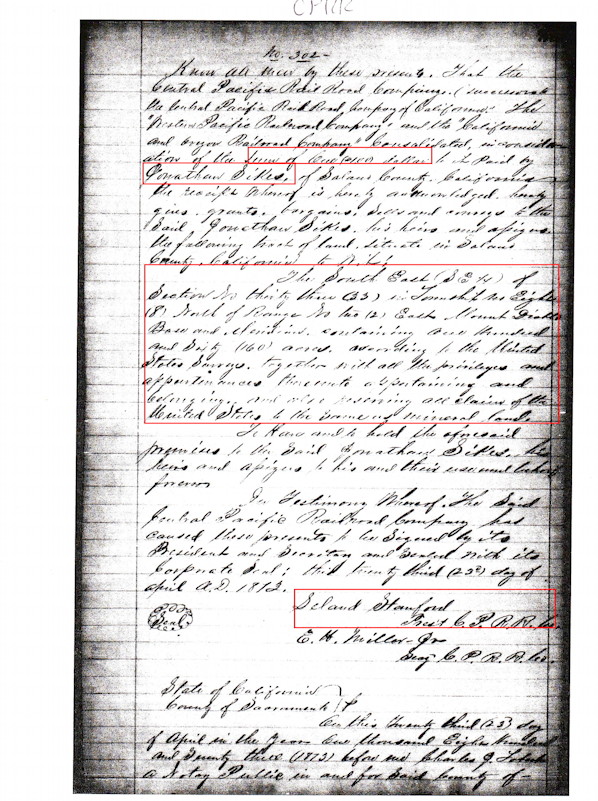 CPRR
No. 302 -
Know all men by these presents. That the
Central Pacific Rail Road Company. (successor to
the Central Pacific Rail Road Company of California." The
"Western Pacific Railroad Company" and the "California
and Oregon Railroad Company" Consolidated, in consider-
ation of the sum of One ($1.00) dollar to it Paid by
Jonathan Sikes, of Solano County, California
the receipt whereof is hereby acknowledged, hereby
gives, grants, bargains, sells and conveys to the
Said Jonathan Sikes, his heirs and assigns,
the following tract of land, situate in Solano
County, California to wit:
The South East (S E ¼) of
Section No thirty three (33) in Township No Eight
(8) North of Range No two (2) East, Mount Diablo
Base and Meridian, containing one hundred
and Sixty (160) acres, according to the United
States Surveys, together with all the privileges and
appurtenances thereunto appertaining and
belonging, and also reserving all claim of the
United States to the same as mineral land.
To Have and to hold the aforesaid
premises to the said Jonathan Sikes, his
heirs and assigns to his and their use and behoof
forever
In Testimony Whereof, The Said
Central Pacific Railroad Company has
caused these presents to be Signed by its
President and Secretary and Sealed with its
Corporate Seal; this twenty third (23d) day of
April A.D. 1873.
Seal
Leland Stanford
Pres't C. P. R. R. Co.
E. H. Miller Jr
Secy C. P. R. R. Co.
State of California
County of Sacramento
On this Twenty third (23) day
of April in the Year One thousand Eight Hundred
and Seventy three (1873) before me Charles J.
a Notary Public in and for said County of -